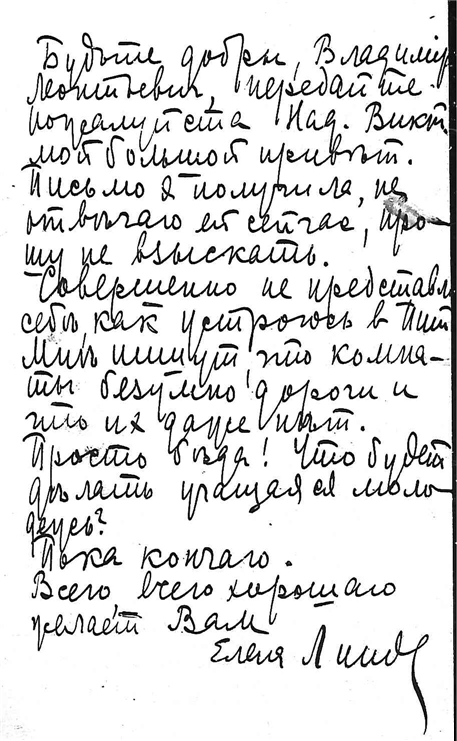 Будьте добры, Владимір
Леонтьевич, передайте
пожалуйста Над. Викт.
мой большой привѣт.
Письмо я получила, не
отвѣчаю ей сейчас, про-
шу не взыскать.
Совершенно не представл
себѣ, как устроюсь в Пит
Мнѣ пишут, что комна-
ты безумно дороги и
что их даже нѣт.
Просто бѣда! Что будет
дѣлать учащаяся моло-
дежь?
Пока кончаю.
Всего всего хорошаго
желает Вам
Елена Линд